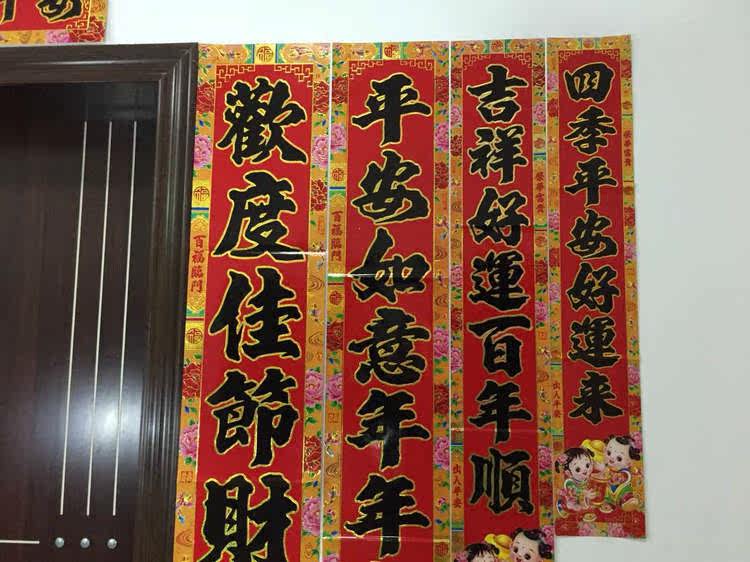 四季平安好運来
吉祥好運百年順
平安如意年年
歡度佳節財
榮華富貴
出入平安
榮華富貴
出入平安
百福臨門
百福臨門